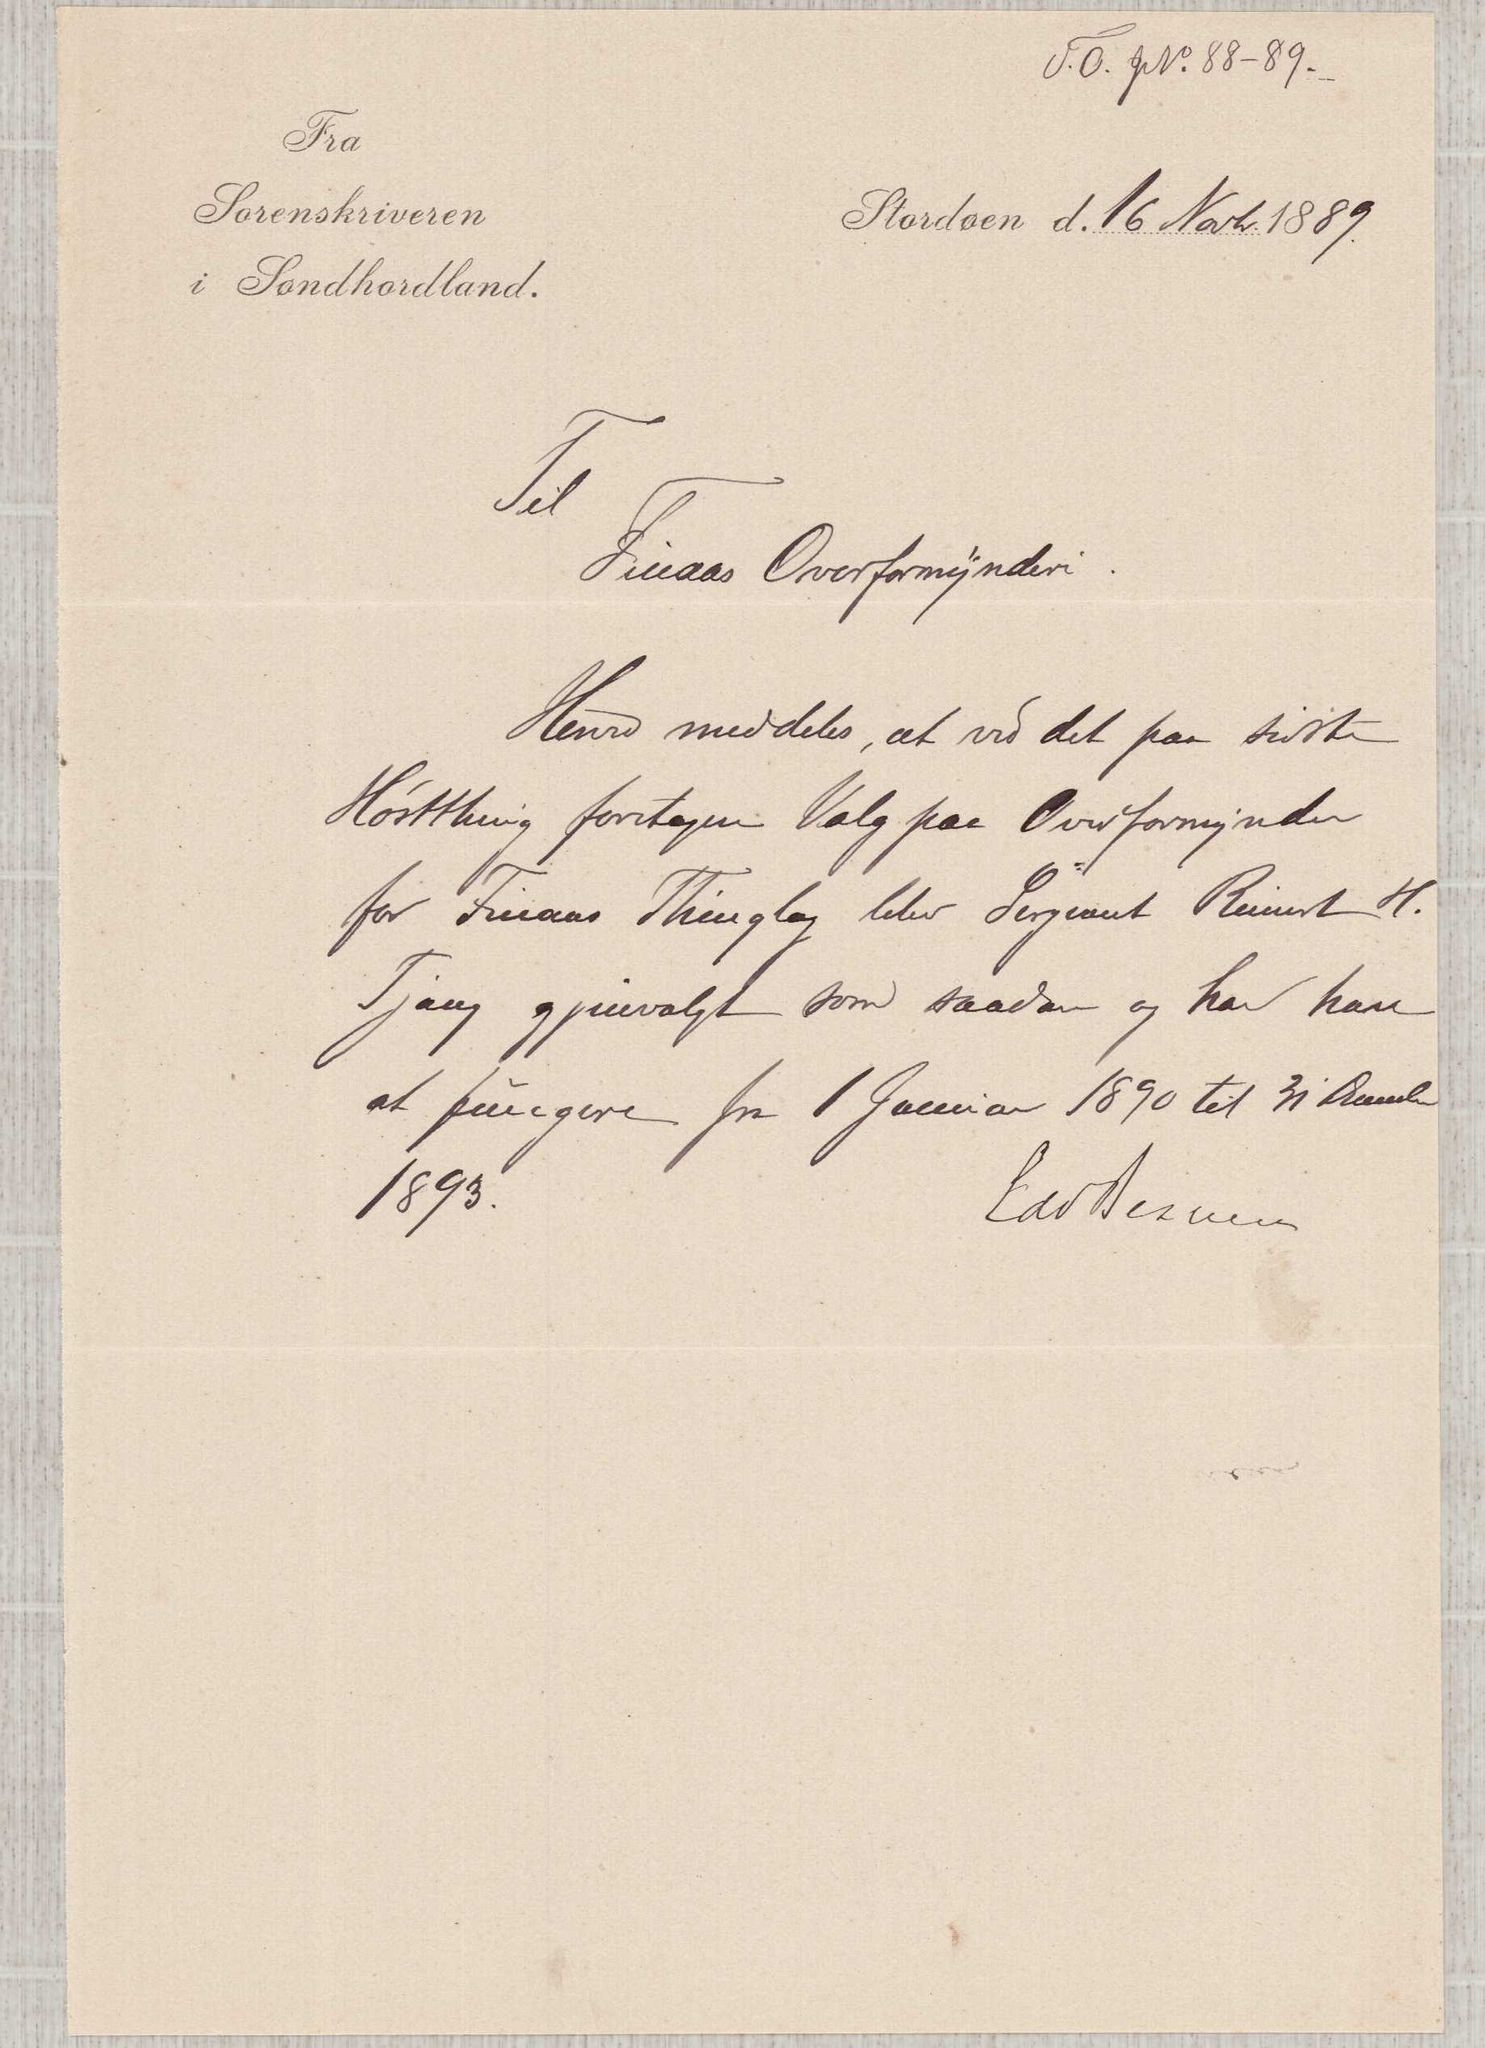 F.O. JNo. 88-89.
Fra
Sorenskriveren
i Søndhordland.
Stordøen d. 16 Novbr. 1889.
Til
Finaas Overformynderi.
Herved meddeles, at ved det paa sidste
Høstthing foretagne Valg paa Overformynder
for Finaas Thinglag blev Sergeant Reinert H.
Tjong gjenvalgt som saadan og har han
at fungere fra 1 Januar 1890 til 31 December
1893.